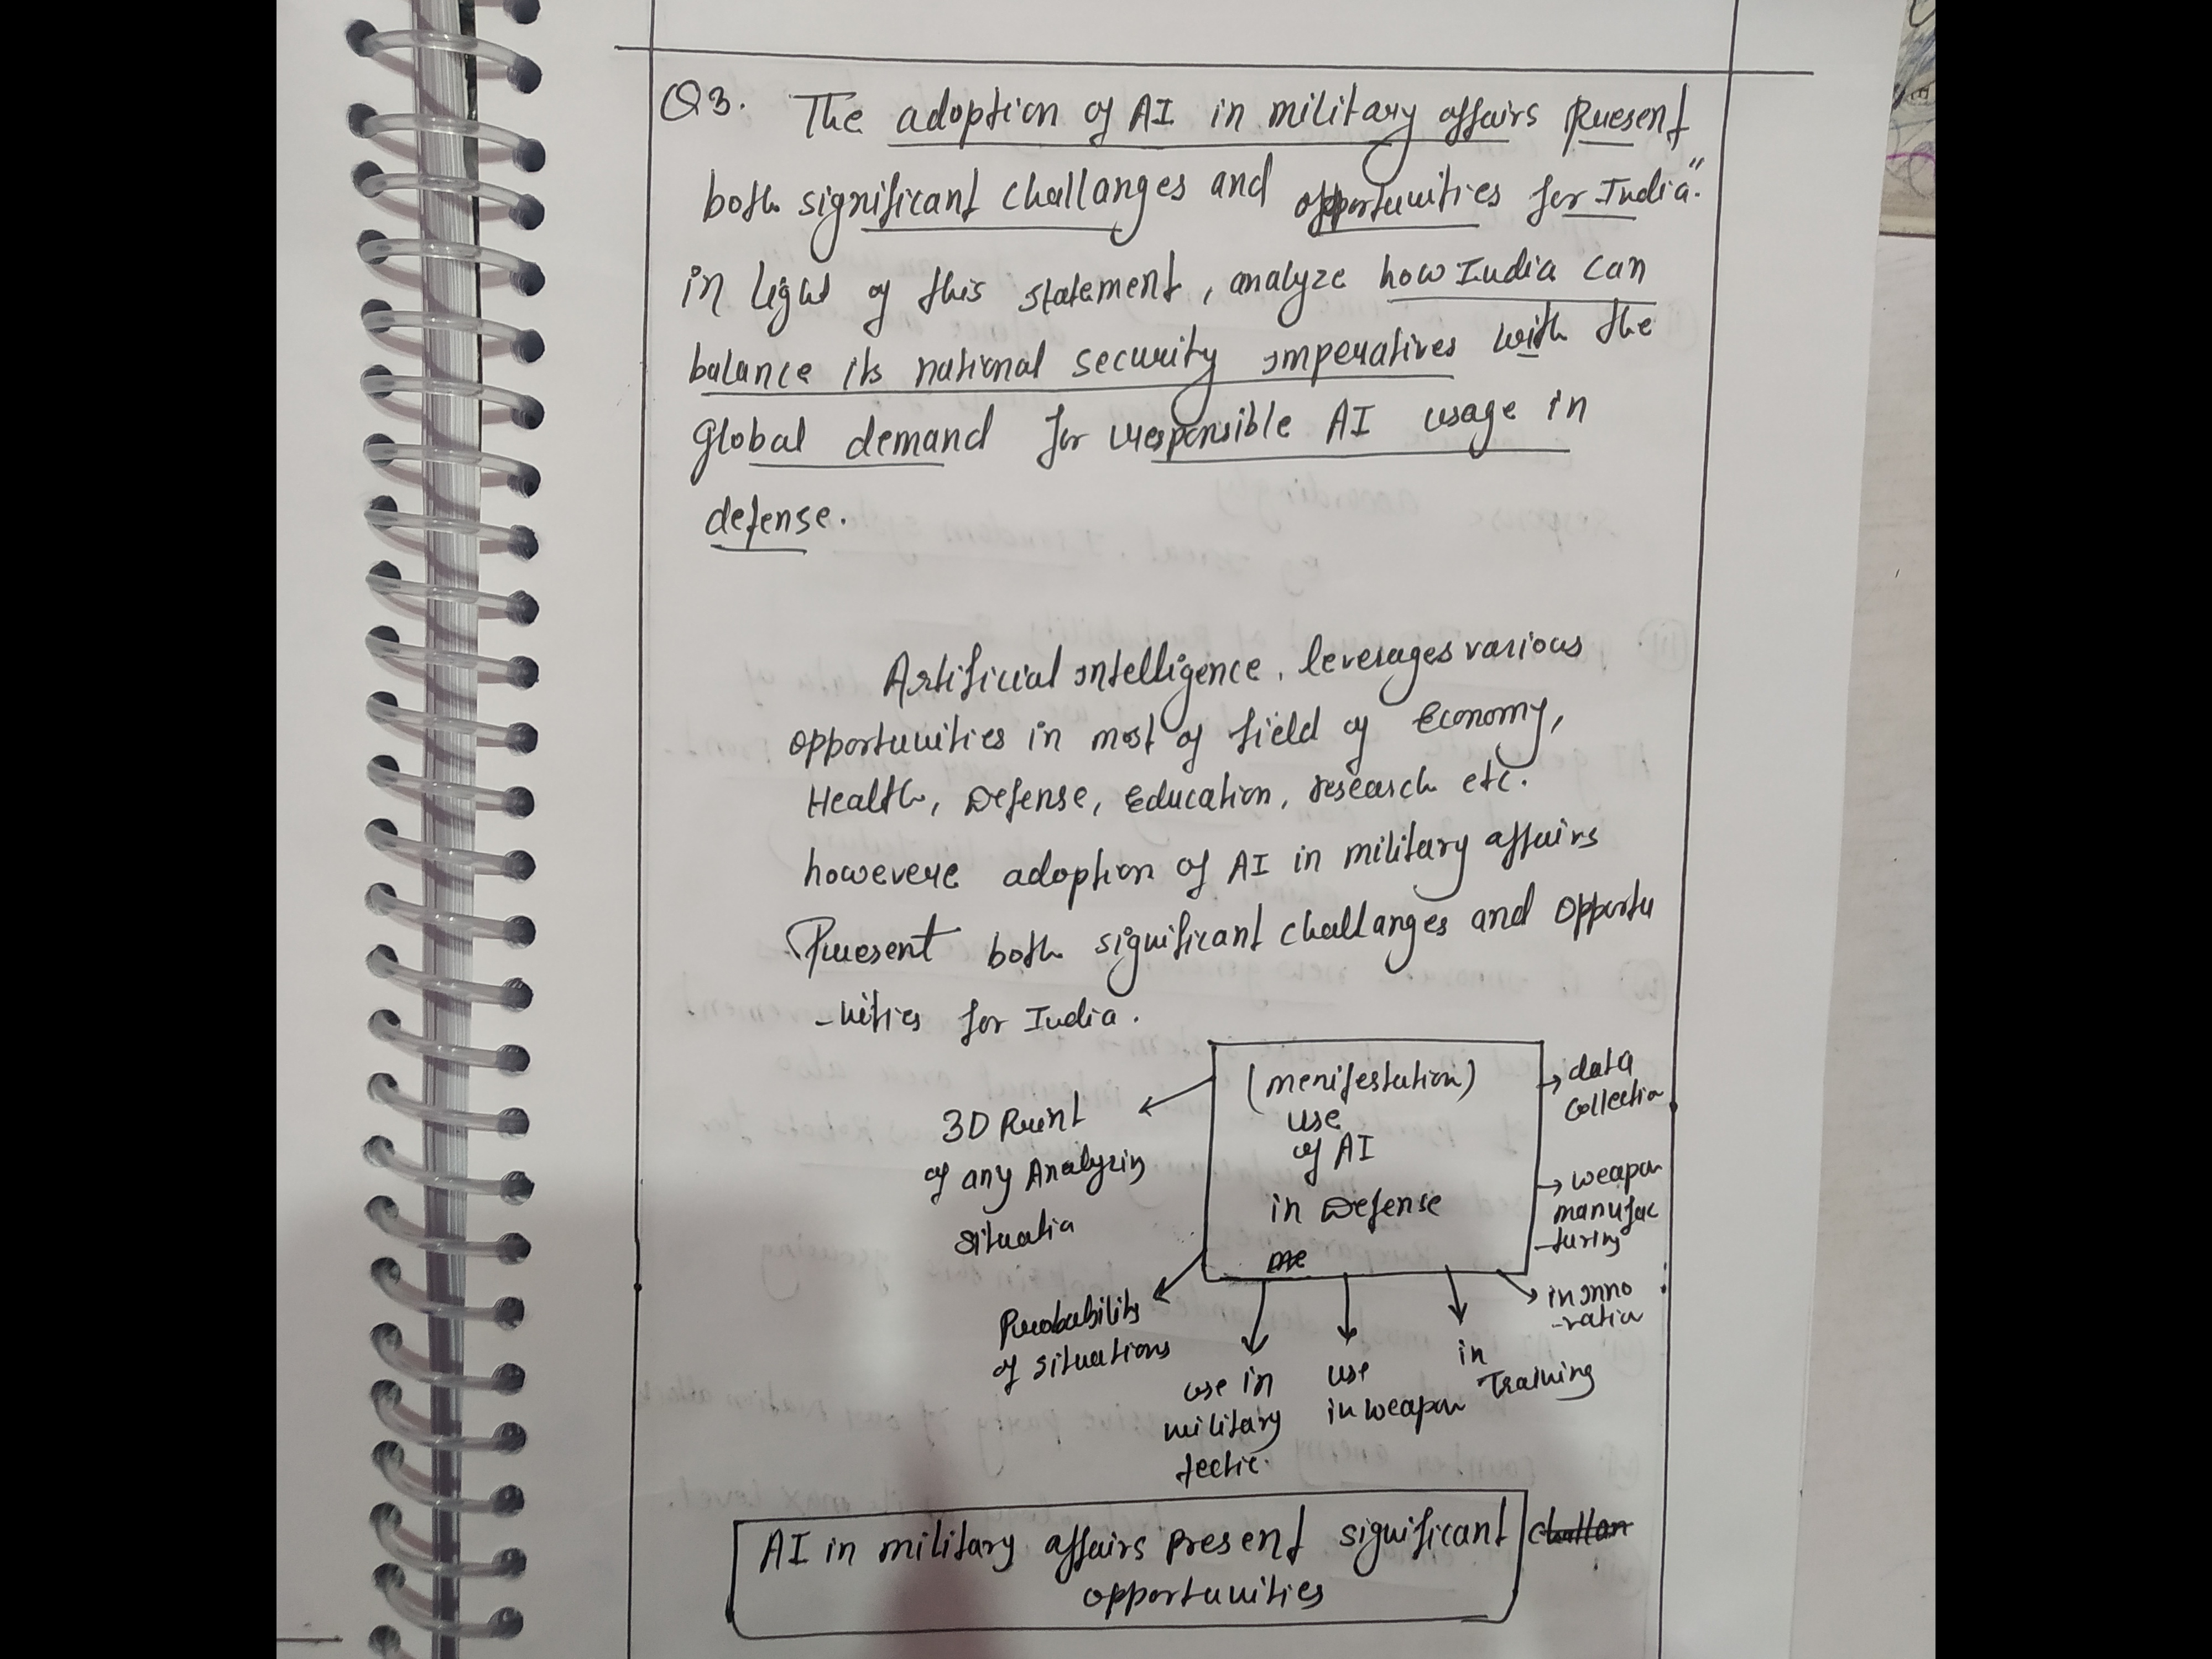 Q3. The adoption of AI in military affairs Present
both significant challanges and opportunities for India."
in light of this statement, analyze how India can
balance its national security imperatives with the
global demand for responsible AI usage in
defense.
Artificial intelligence, leverages various
opportunities in most of field of Economy,
Health, Defense, Education, research etc.
howevere adoption of AI in military affairs
Present both significant challanges and opportu
-nities for India.
(menifestation)
use
of AI
in Defense
3D Print
of any Analyzing
situatia
Probability
of situations
use in
military
tectic.
use
in weapon
in
Training
in inno
-vation
weapon
manufac
-turing
data
collection
AI in military affairs present significant
opportunities